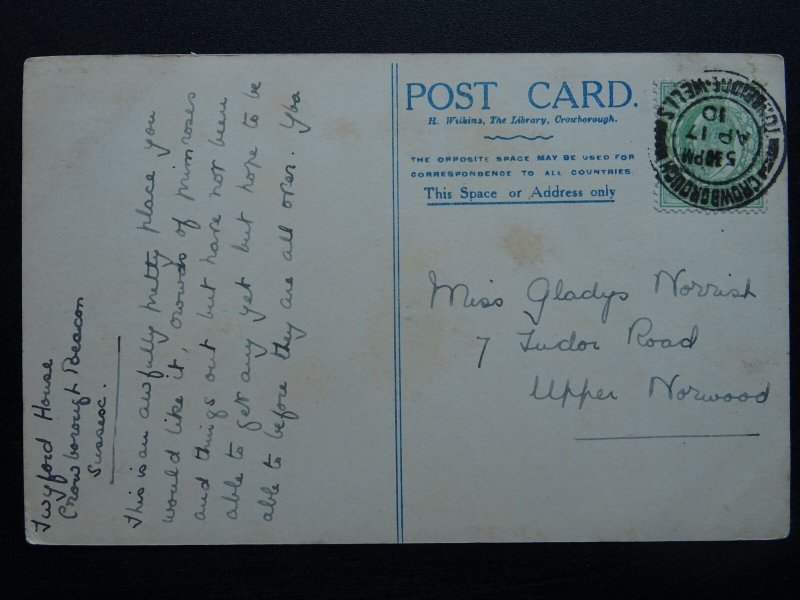 Twyford House
Crowborough Beacon
Sussex.
This is an awfully pretty place you
would like it, crowds of primroses
and things out but have not been
able to get any yet but hope to be
able to before they are all over.
POST CARD.
H. Wilkins, The Library, Crowborough.
THE OPPOSITE SPACE MAY BE USED FOR
CORRESPONDENCE TO ALL COUNTRIES.
This Space or Address only
CROWBOROUGH
TUNBRIDGE WELLS
5 30 PM
AP 17
10
Miss Gladys Norrish
7 Tudor Road
Upper Norwood